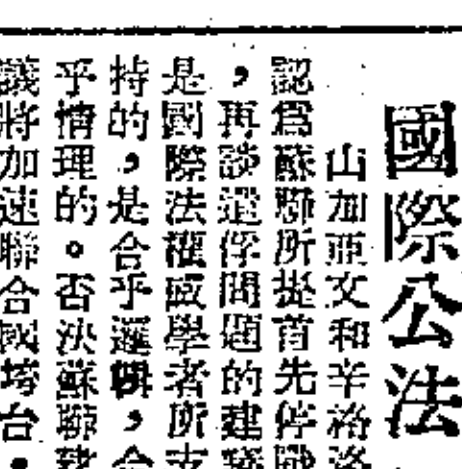 國際公法
山加亞文和辛洛洛
認爲蘇聯所提首先停戰
，再談遣俘問題的建議
是國際法權威學者所支
持的，是合乎邏輯，合
乎情理的。否決蘇聯
議將加速聯合國垮台，